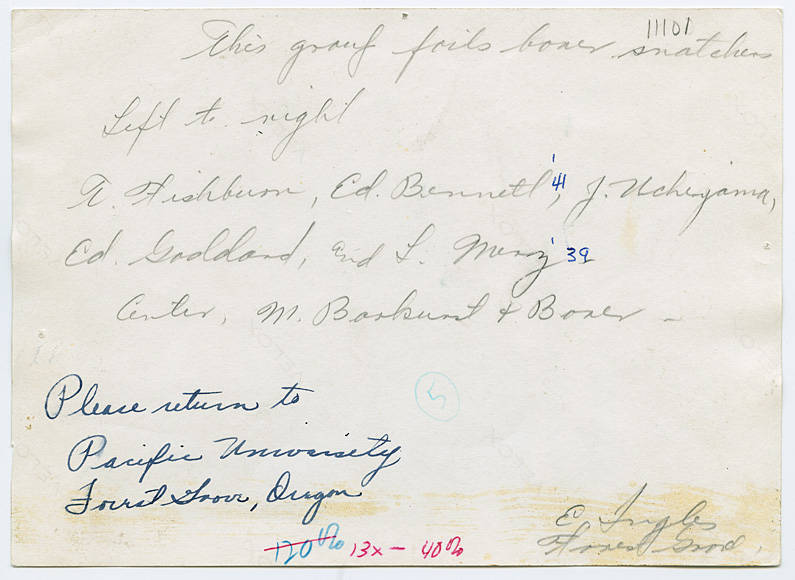 11101
This group foils boxer snatchers
Left to right
T. Fishburn, Ed. Bennett '41, J. Uchiyama,
Ed. Goddard, and L. Merz '39
Center, M. Barkurst & Boxer -
5
Please return to
Pacific University
Forest Grove, Oregon
120% 13x - 40%
E. Ingles
Forest Grove,